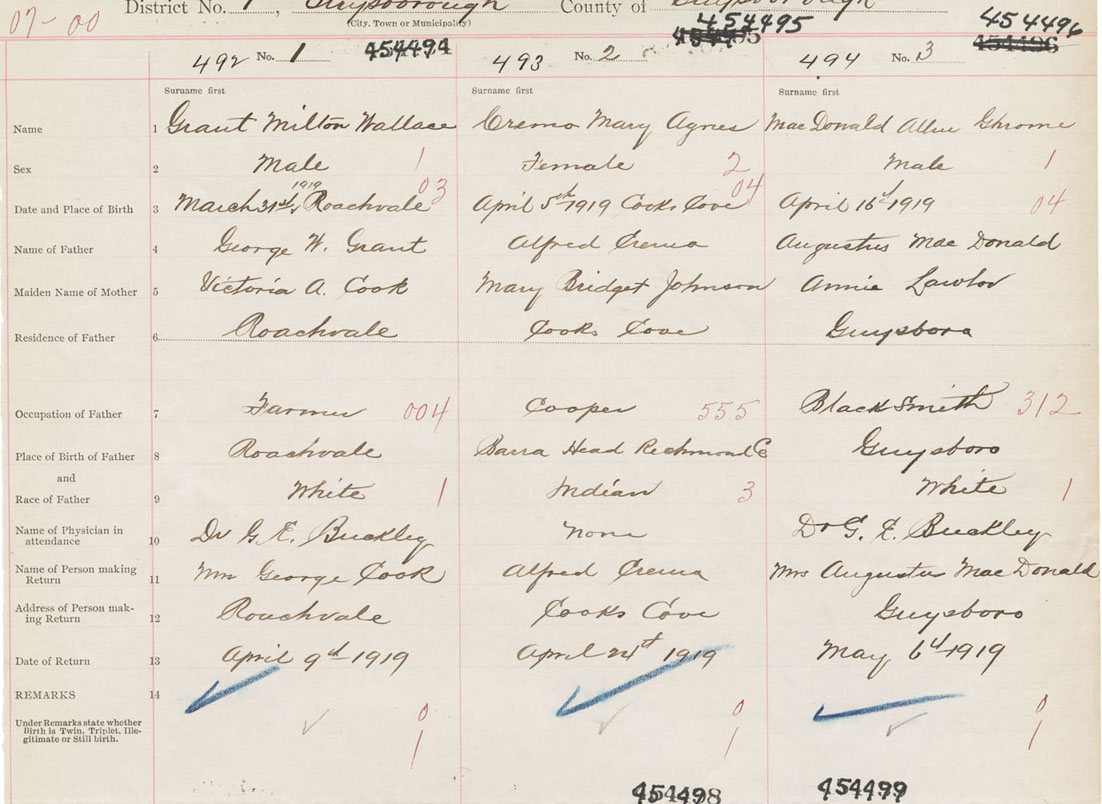 District No. 1, Guysborough County of Guysborough
07-00 (City, Town or Municipality) 454495 454496
492 No. 1 454494 493 No. 2 494 No. 3 454496
Surname first Surname first Surname first
Name 1 Grant Milton Wallace Cremo Mary Agnes MacDonald Allen Chrome
Sex 2 Male 1 Female 2 Male 1
Date and Place of Birth 3 March 31st 1919 Roachvale 03 April 5th 1919 Cooks Cove 04 April 16th 1919 04
Name of Father 4 George W. Grant Alfred Cremo Augustus MacDonald
Maiden Name of Mother 5 Victoria A. Cook Mary Bridget Johnson Annie Lawlor
Residence of Father 6 Roachvale Cooks Cove Guysboro
Occupation of Father 7 Farmer 004 Cooper 555 BlackSmith 312
Place of Birth of Father 8 Roachvale Barra Head Richmond Co Guysboro
and
Race of Father 9 White 1 Indian 3 White 1
Name of Physician in
attendance 10 Dr G. E. Buckley None Dr G. E. Buckley
Name of Person making
Return 11 George Cook Alfred Cremo Mrs Augustus MacDonald
Address of Person mak-
ing Return 12 Roachvale Cooks Cove Guysboro
Date of Return 13 April 9th 1919 April 1919 May 6th 1919
REMARKS 14
Under Remarks state whether 0 0 0
Birth is Twin, Triplet, Ille-
gitimate or Still birth. 1 1 1
454498 454499